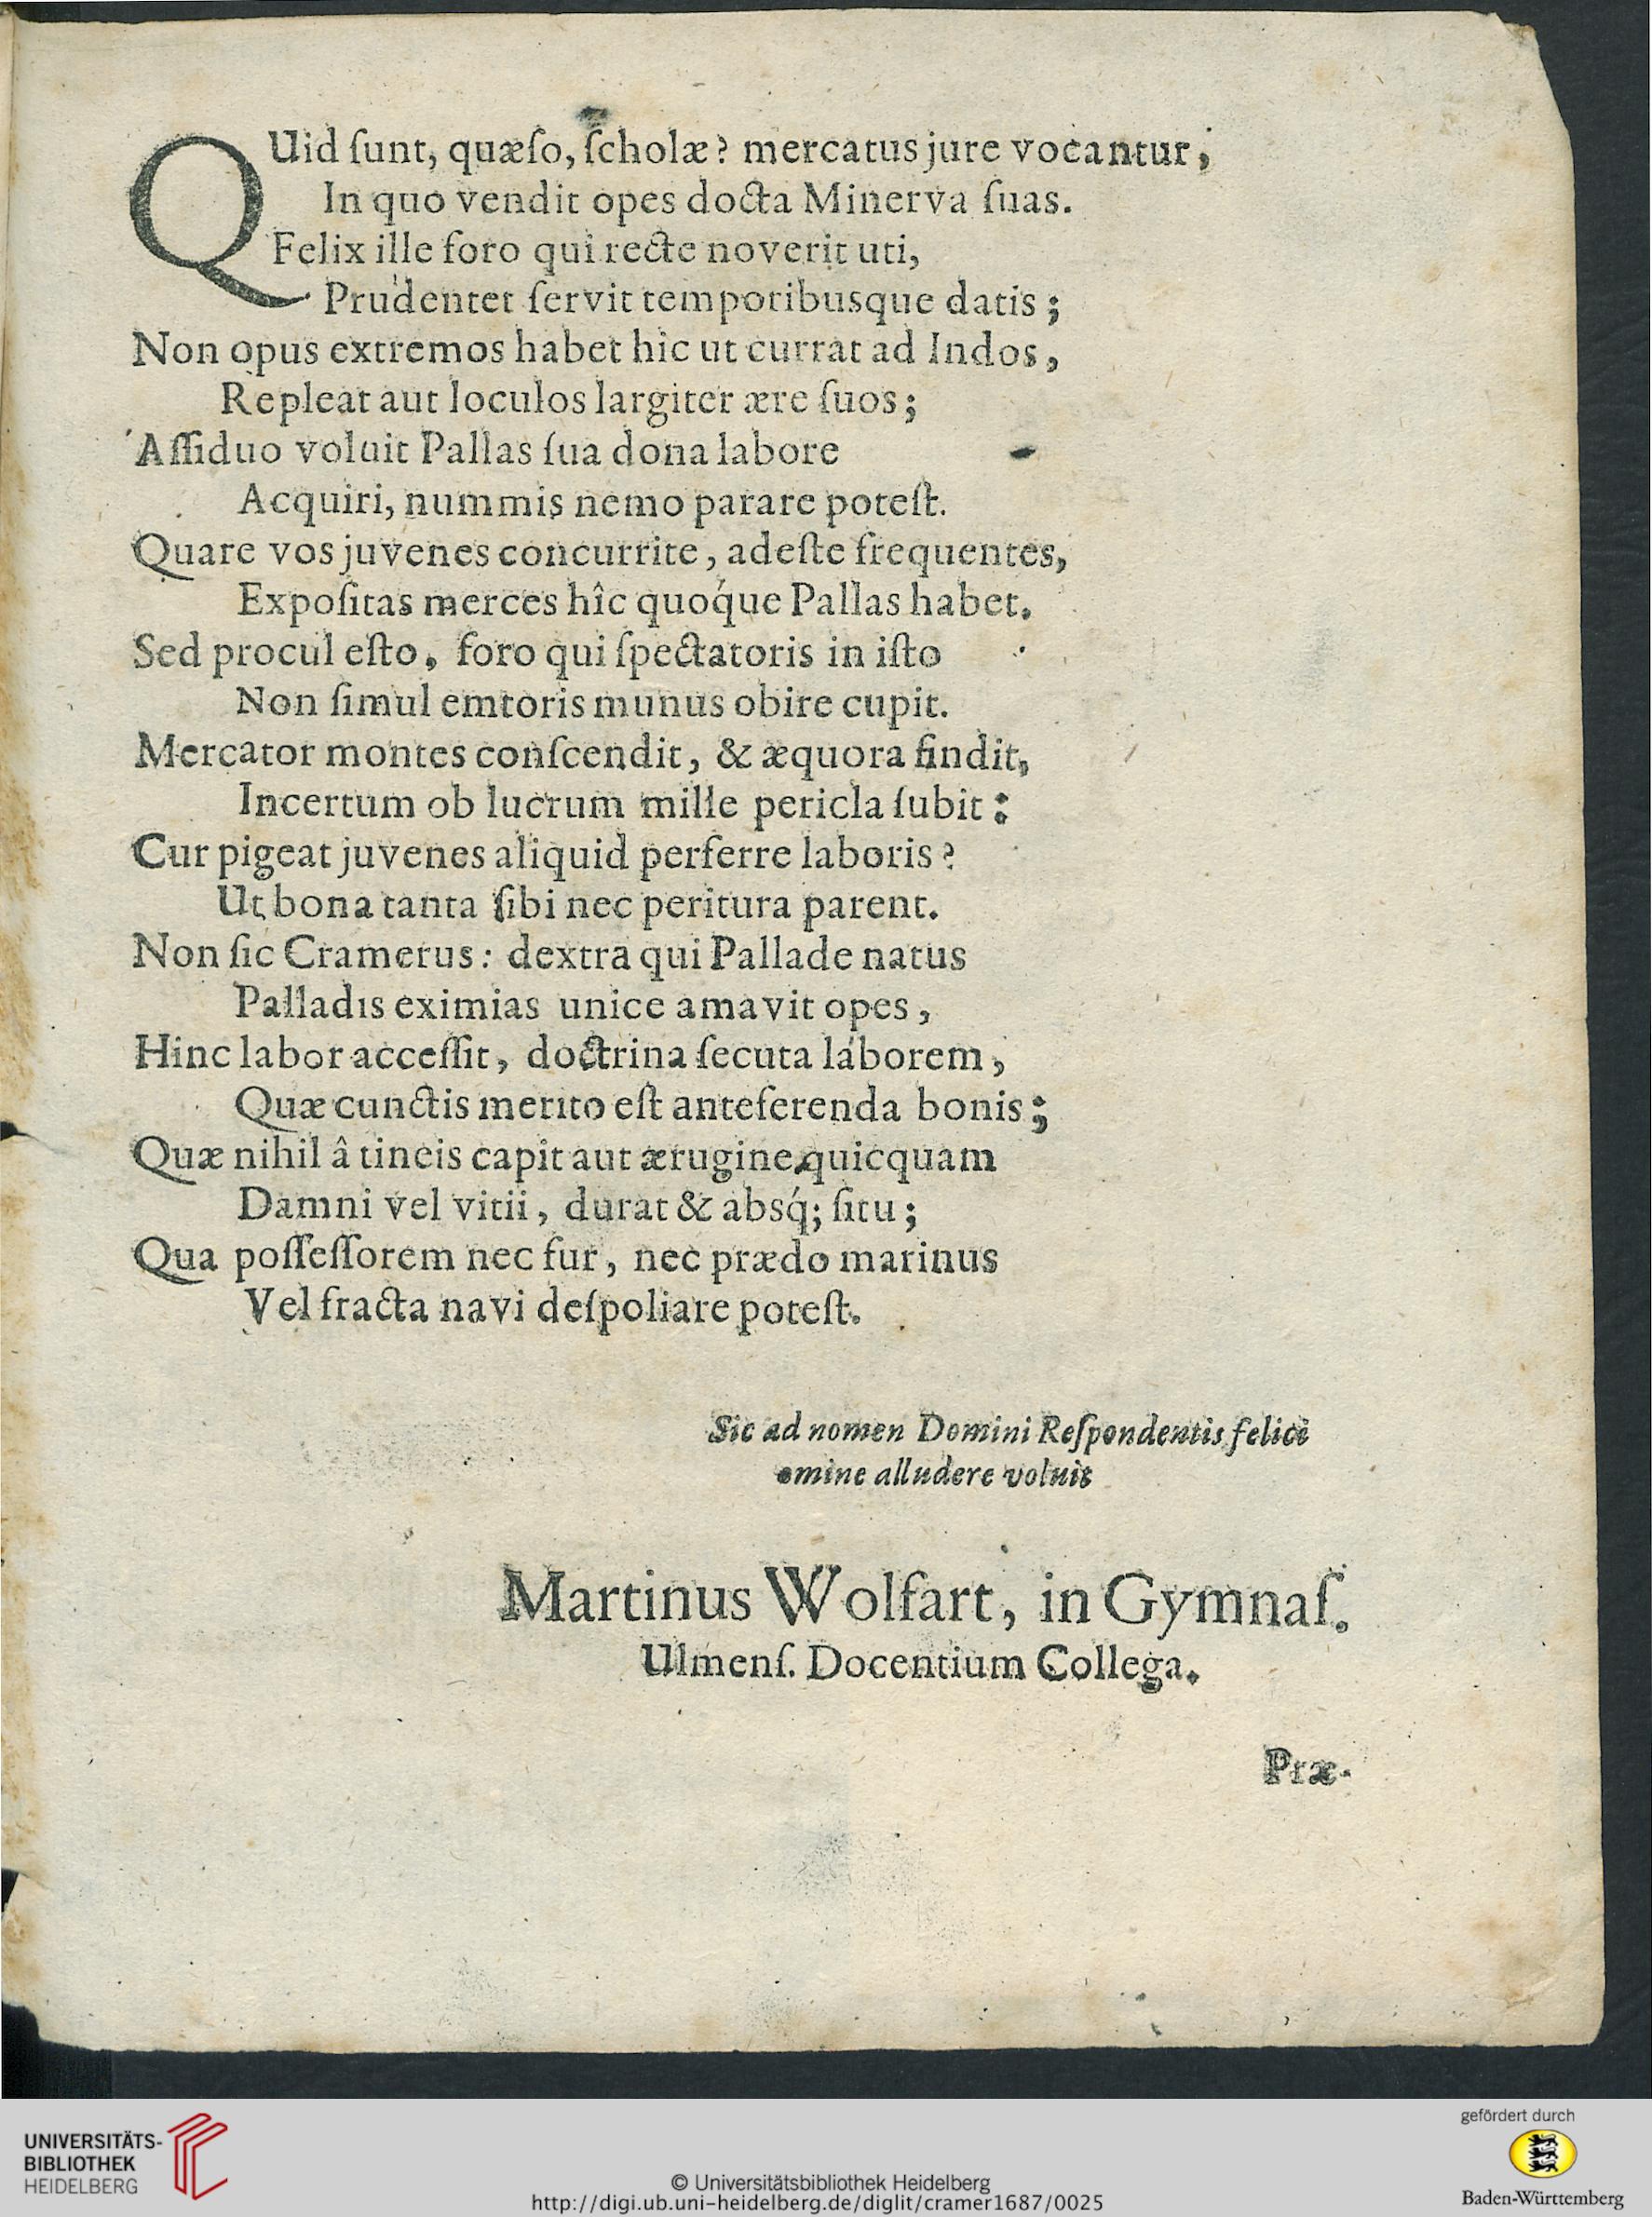 QUid ſunt, quæſo, ſcholæ? mercatus jure vocantur,
In quo vendit opes docta Minerva ſuas.
Felix ille foro qui recte noverit uti,
Prudenter ſervit temporibusque datis;
Non opus extremos habet hic ut currat ad Indos,
Repleat aut loculos largiter ære ſuos;
Aſſiduo voluit Pallas ſua dona labore
Acquiri, nummis nemo parare poteſt.
Quare vos juvenes concurrite, adeſte frequentes,
Expoſitas merces hîc quoq́ue Pallas habet.
Sed procul eſto, foro qui ſpectatoris in iſto
Non ſimul emtoris munus obire cupit.
Mercator montes conſcendit, & æquora findit,
Incertum ob lucrum mille pericla ſubit:
Cur pigeat juvenes aliquid perferre laboris?
Ut bona tanta ſibi nec peritura parent.
Non ſic Cramerus: dextra qui Pallade natus
Palladis eximias unice amavit opes,
Hinc labor acceſſit, doctrina ſecuta laborem,
Quæ cunctis merito eſt anteferenda bonis;
Quæ nihil â tineis capit aut ærugine quicquam
Damni vel vitii, durat & absq́; ſitu;
Qua poſſeſſorem nec fur, nec prædo marinus
Vel fracta navi deſpoliare poteſt.
Sic ad nomen Domini Reſpondentis felici
omine alludere voluit
Martinus Wolfart, in Gymnaſ.
Ulmenſ. Docentium Collega.
Præ-
UNIVERSITÄTS-
BIBLIOTHEK
HEIDELBERG
© Universitätsbibliothek Heidelberg
http://digi.ub.uni-heidelberg.de/diglit/cramer1687/0025
gefördert durch
Baden-Württemberg